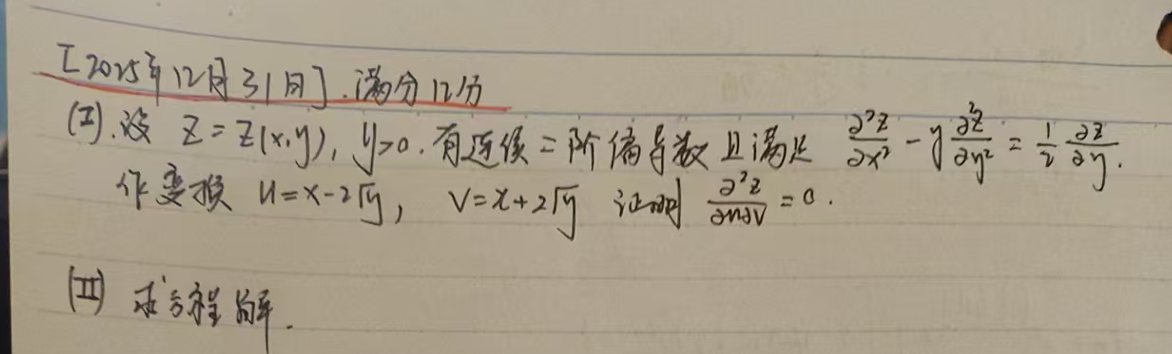 [2025年12月31日].满分12分
(I).设 z=z(x,y), y>0.有连续二阶偏导数且满足 ∂²z/∂x² - y ∂²z/∂y² = 1/2 ∂z/∂y.
作变换 u=x-2√y, v=x+2√y 证明 ∂²z/∂u∂v = 0.
(II) 求方程解.